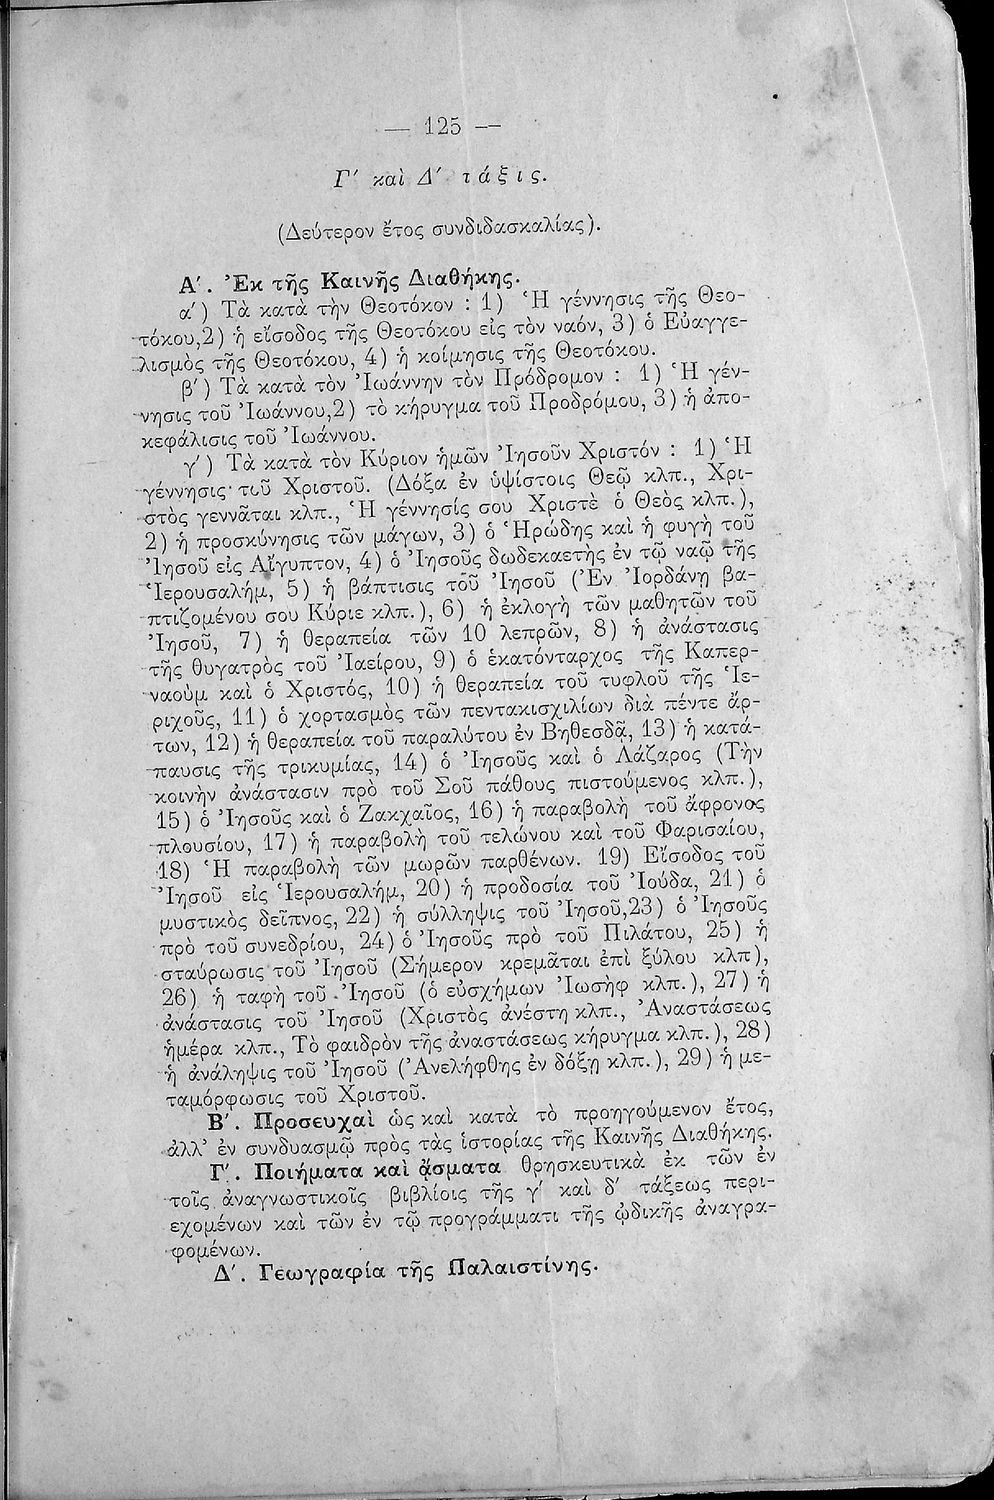 — 125 —
Γ΄ καὶ Δ΄ τάξις.
(Δεύτερον ἔτος συνδιδασκαλίας).
Α΄. Ἐκ τῆς Καινῆς Διαθήκης.
α΄) Τὰ κατὰ τὴν Θεοτόκον : 1) Ἡ γέννησις τῆς Θεο-
τόκου,2) ἡ εἴσοδος τῆς Θεοτόκου εἰς τὸν ναόν, 3) ὁ Εὐαγγε-
λισμὸς τῆς Θεοτόκου, 4) ἡ κοίμησις τῆς Θεοτόκου.
β΄) Τὰ κατὰ τὸν Ἰωάννην τὸν Πρόδρομον : 1) Ἡ γέν-
νησις τοῦ Ἰωάννου,2) τὸ κήρυγμα τοῦ Προδρόμου, 3) ἡ ἀπο-
κεφάλισις τοῦ Ἰωάννου.
γ΄) Τὰ κατὰ τὸν Κύριον ἡμῶν Ἰησοῦν Χριστόν : 1) Ἡ
γέννησις τοῦ Χριστοῦ. (Δόξα ἐν ὑψίστοις Θεῷ κλπ., Χρι-
στὸς γεννᾶται κλπ., Ἡ γέννησίς σου Χριστὲ ὁ Θεὸς κλπ.),
2) ἡ προσκύνησις τῶν μάγων, 3) ὁ Ἡρώδης καὶ ἡ φυγὴ τοῦ
Ἰησοῦ εἰς Αἴγυπτον, 4) ὁ Ἰησοῦς δωδεκαετὴς ἐν τῷ ναῷ τῆς
Ἱερουσαλήμ, 5) ἡ βάπτισις τοῦ Ἰησοῦ (Ἐν Ἰορδάνῃ βα-
πτιζομένου σου Κύριε κλπ.), 6) ἡ ἐκλογὴ τῶν μαθητῶν τοῦ
Ἰησοῦ, 7) ἡ θεραπεία τῶν 10 λεπρῶν, 8) ἡ ἀνάστασις
τῆς θυγατρὸς τοῦ Ἰαείρου, 9) ὁ ἑκατόνταρχος τῆς Καπερ-
ναοὺμ καὶ ὁ Χριστός, 10) ἡ θεραπεία τοῦ τυφλοῦ τῆς Ἱε-
ριχοῦς, 11) ὁ χορτασμὸς τῶν πεντακισχιλίων διὰ πέντε ἄρ-
των, 12) ἡ θεραπεία τοῦ παραλύτου ἐν Βηθεσδᾷ, 13) ἡ κατά-
παυσις τῆς τρικυμίας, 14) ὁ Ἰησοῦς καὶ ὁ Λάζαρος (Τὴν
κοινὴν ἀνάστασιν πρὸ τοῦ Σοῦ πάθους πιστούμενος κλπ.),
15) ὁ Ἰησοῦς καὶ ὁ Ζακχαῖος, 16) ἡ παραβολὴ τοῦ ἄφρονος
πλουσίου, 17) ἡ παραβολὴ τοῦ τελώνου καὶ τοῦ Φαρισαίου,
18) Ἡ παραβολὴ τῶν μωρῶν παρθένων. 19) Εἴσοδος τοῦ
Ἰησοῦ εἰς Ἱερουσαλήμ, 20) ἡ προδοσία τοῦ Ἰούδα, 21) ὁ
μυστικὸς δεῖπνος, 22) ἡ σύλληψις τοῦ Ἰησοῦ,23) ὁ Ἰησοῦς
πρὸ τοῦ συνεδρίου, 24) ὁ Ἰησοῦς πρὸ τοῦ Πιλάτου, 25) ἡ
σταύρωσις τοῦ Ἰησοῦ (Σήμερον κρεμᾶται ἐπὶ ξύλου κλπ),
26) ἡ ταφὴ τοῦ Ἰησοῦ (ὁ εὐσχήμων Ἰωσὴφ κλπ.), 27) ἡ
ἀνάστασις τοῦ Ἰησοῦ (Χριστὸς ἀνέστη κλπ., Ἀναστάσεως
ἡμέρα κλπ., Τὸ φαιδρὸν τῆς ἀναστάσεως κήρυγμα κλπ.), 28)
ἡ ἀνάληψις τοῦ Ἰησοῦ (Ἀνελήφθης ἐν δόξῃ κλπ.), 29) ἡ με-
ταμόρφωσις τοῦ Χριστοῦ.
Β΄. Προσευχαὶ ὡς καὶ κατὰ τὸ προηγούμενον ἔτος,
ἀλλ' ἐν συνδυασμῷ πρὸς τὰς ἱστορίας τῆς Καινῆς Διαθήκης.
Γ΄. Ποιήματα καὶ ᾄσματα θρησκευτικὰ ἐκ τῶν ἐν
τοῖς ἀναγνωστικοῖς βιβλίοις τῆς γ΄ καὶ δ΄ τάξεως περι-
εχομένων καὶ τῶν ἐν τῷ προγράμματι τῆς ᾠδικῆς ἀναγρα-
φομένων.
Δ΄. Γεωγραφία τῆς Παλαιστίνης.